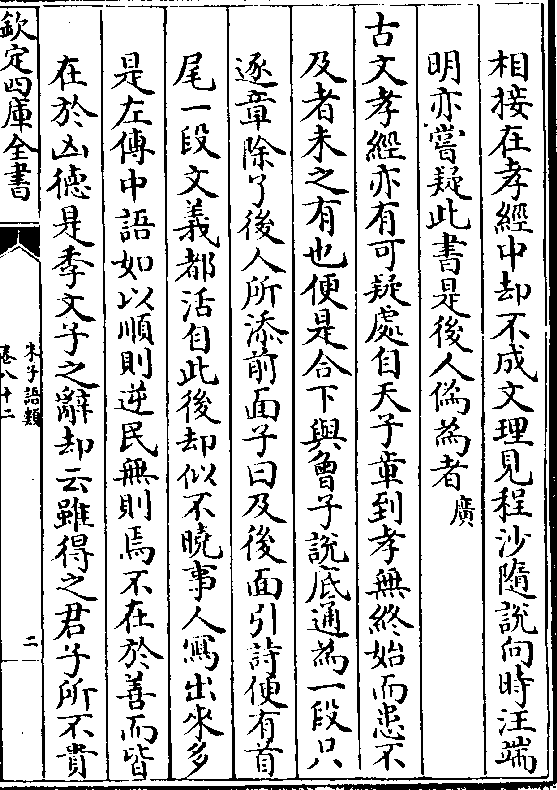 相接在孝經中却不成文理見程沙隨說向時汪端
明亦嘗疑此書是後人僞為者廣
古文孝經亦有可疑處自天子章到孝無終始而患不
及者未之有也便是合下與曾子說底通為一段只
逐章除了後人所添前面子曰及後面引詩便有首
尾一段文義都活自此後却似不曉事人寫出來多
是左傳中語如以順則逆民無則焉不在於善而皆
在於凶德是季文子之辭却云雖得之君子所不貴
欽定四庫全書
朱子語類
卷八十二
二